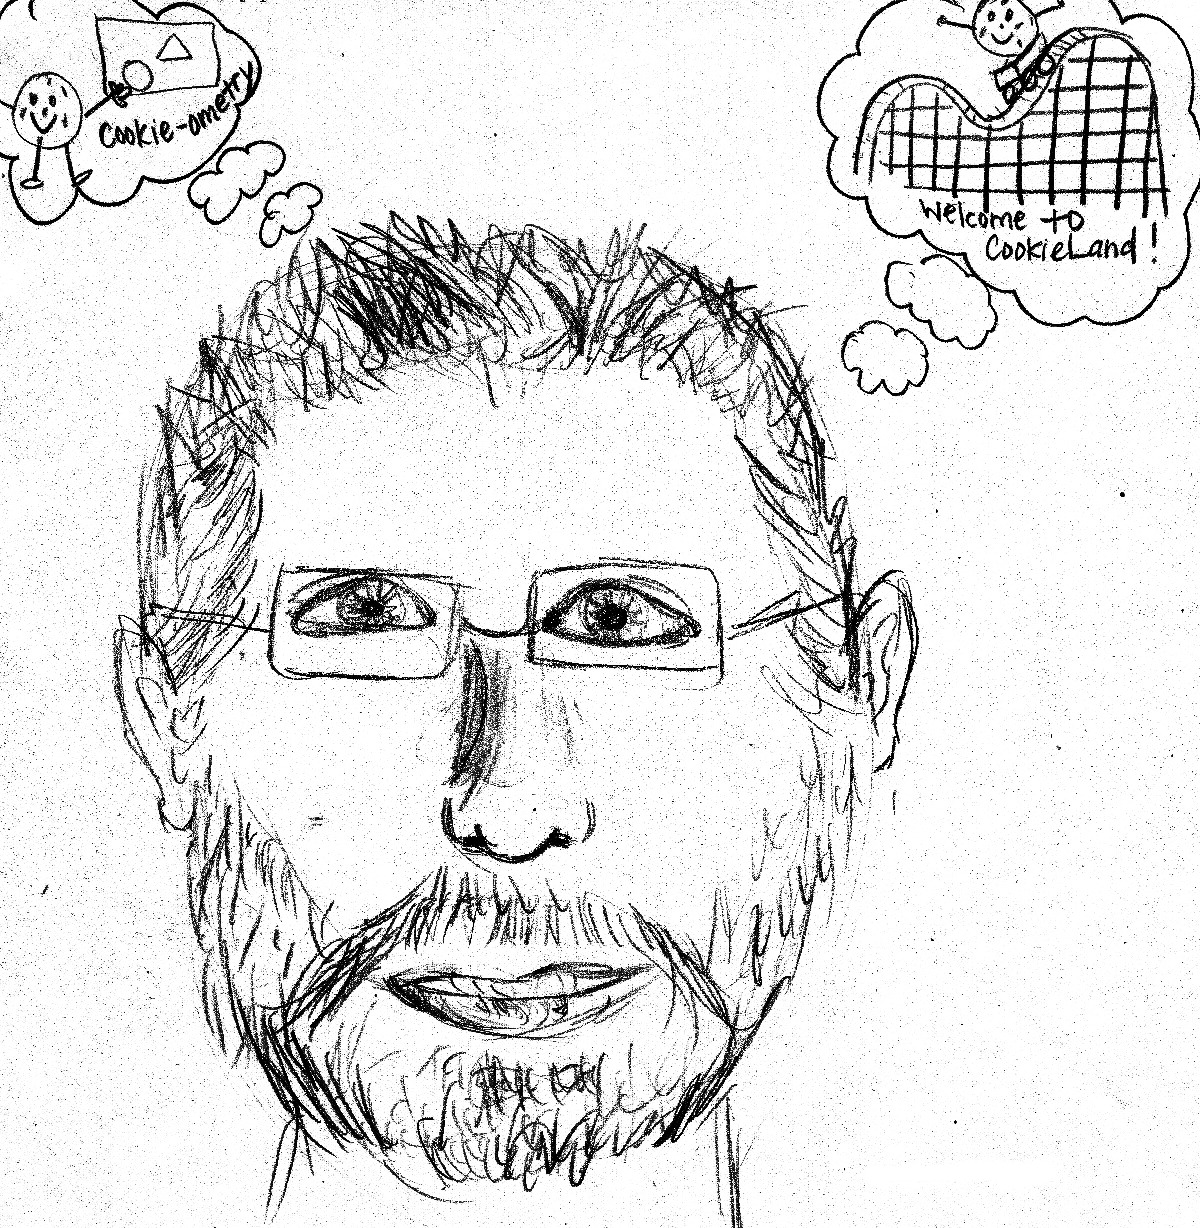 Cookie-ometry
Welcome to
CookieLand!